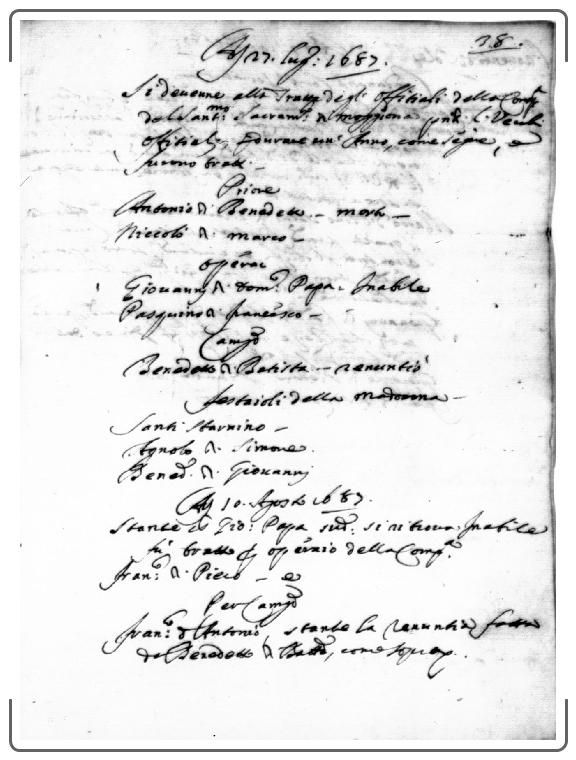 38.
Adj 27. lug.: 1687.
Si devenne alla Tratta degli Offitiali della Comp.
del Santi.mo Sacram. di Moggiona
Offitiali, e durare un' Anno, come segue, e
furono tratti -
Priore
Antonio di Benedetto - morto -
Niccolò di marco -
operai
Giovannj di dom.o Papa. Inabile
Pasquino di francesco -
Camg.o
Benedetto di Batista - renuntiò
festaioli della madonna -
Santi Starnino -
Agnolo di Simone.
Bened.o di Giovannj
Adj 10. Agosto 1687.
Stante che Gio: Papa sud.o si ritrova Inabile
fu tratto p operaio della Comp.a
fran.o di Piero - e
Per Camg.o
fran.o d'Antonio, stante la renuntia fatta
da Benedetto di Batta, come sopra.